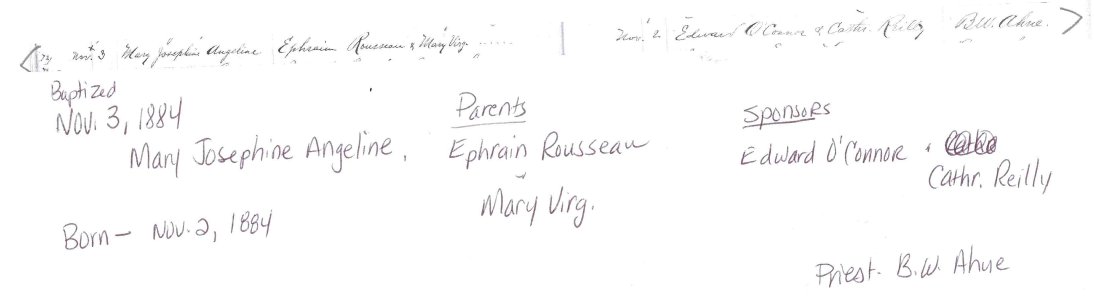 Nov. 3 Mary Josephine Angeline Ephraim Rousseau & Mary Virg ...... Nov. 2 Edward O'Connor & Cathr. Reilly B.W. Ahne.
Baptized
Nov. 3, 1884
Mary Josephine Angeline,
Born — Nov. 2, 1884
Parents
Ephrain Rousseau
Mary Virg.
Sponsors
Edward O'Connor
Cathr. Reilly
Priest - B.W. Ahne